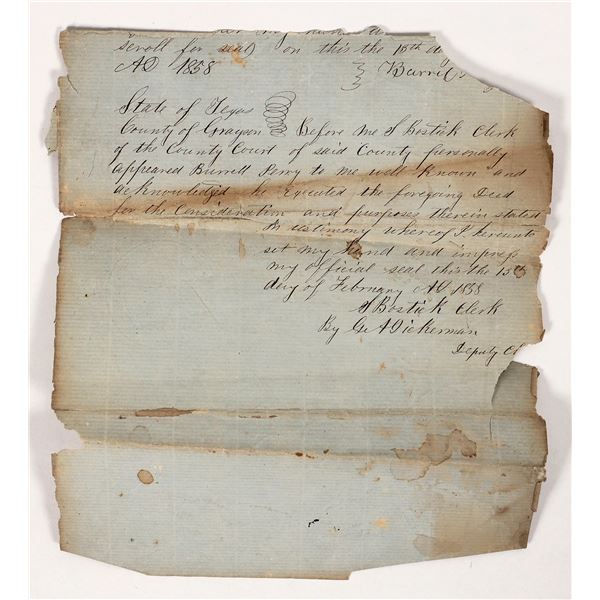 scroll for seal) on this the 15th da
AD 1858 Burril
State of Texas
County of Grayson Before me S Bostick Clerk
of the County Court of said County personally
appeared Burrell Perry to me well known and
acknowledged he executed the foregoing Deed
for the Consideration and purposes therein stated
In testimony whereof I hereunto
set my hand and impress
my official seal this the 15th
day of February AD 1858
S Bostick Clerk
By G A Dickerman
Deputy Cl